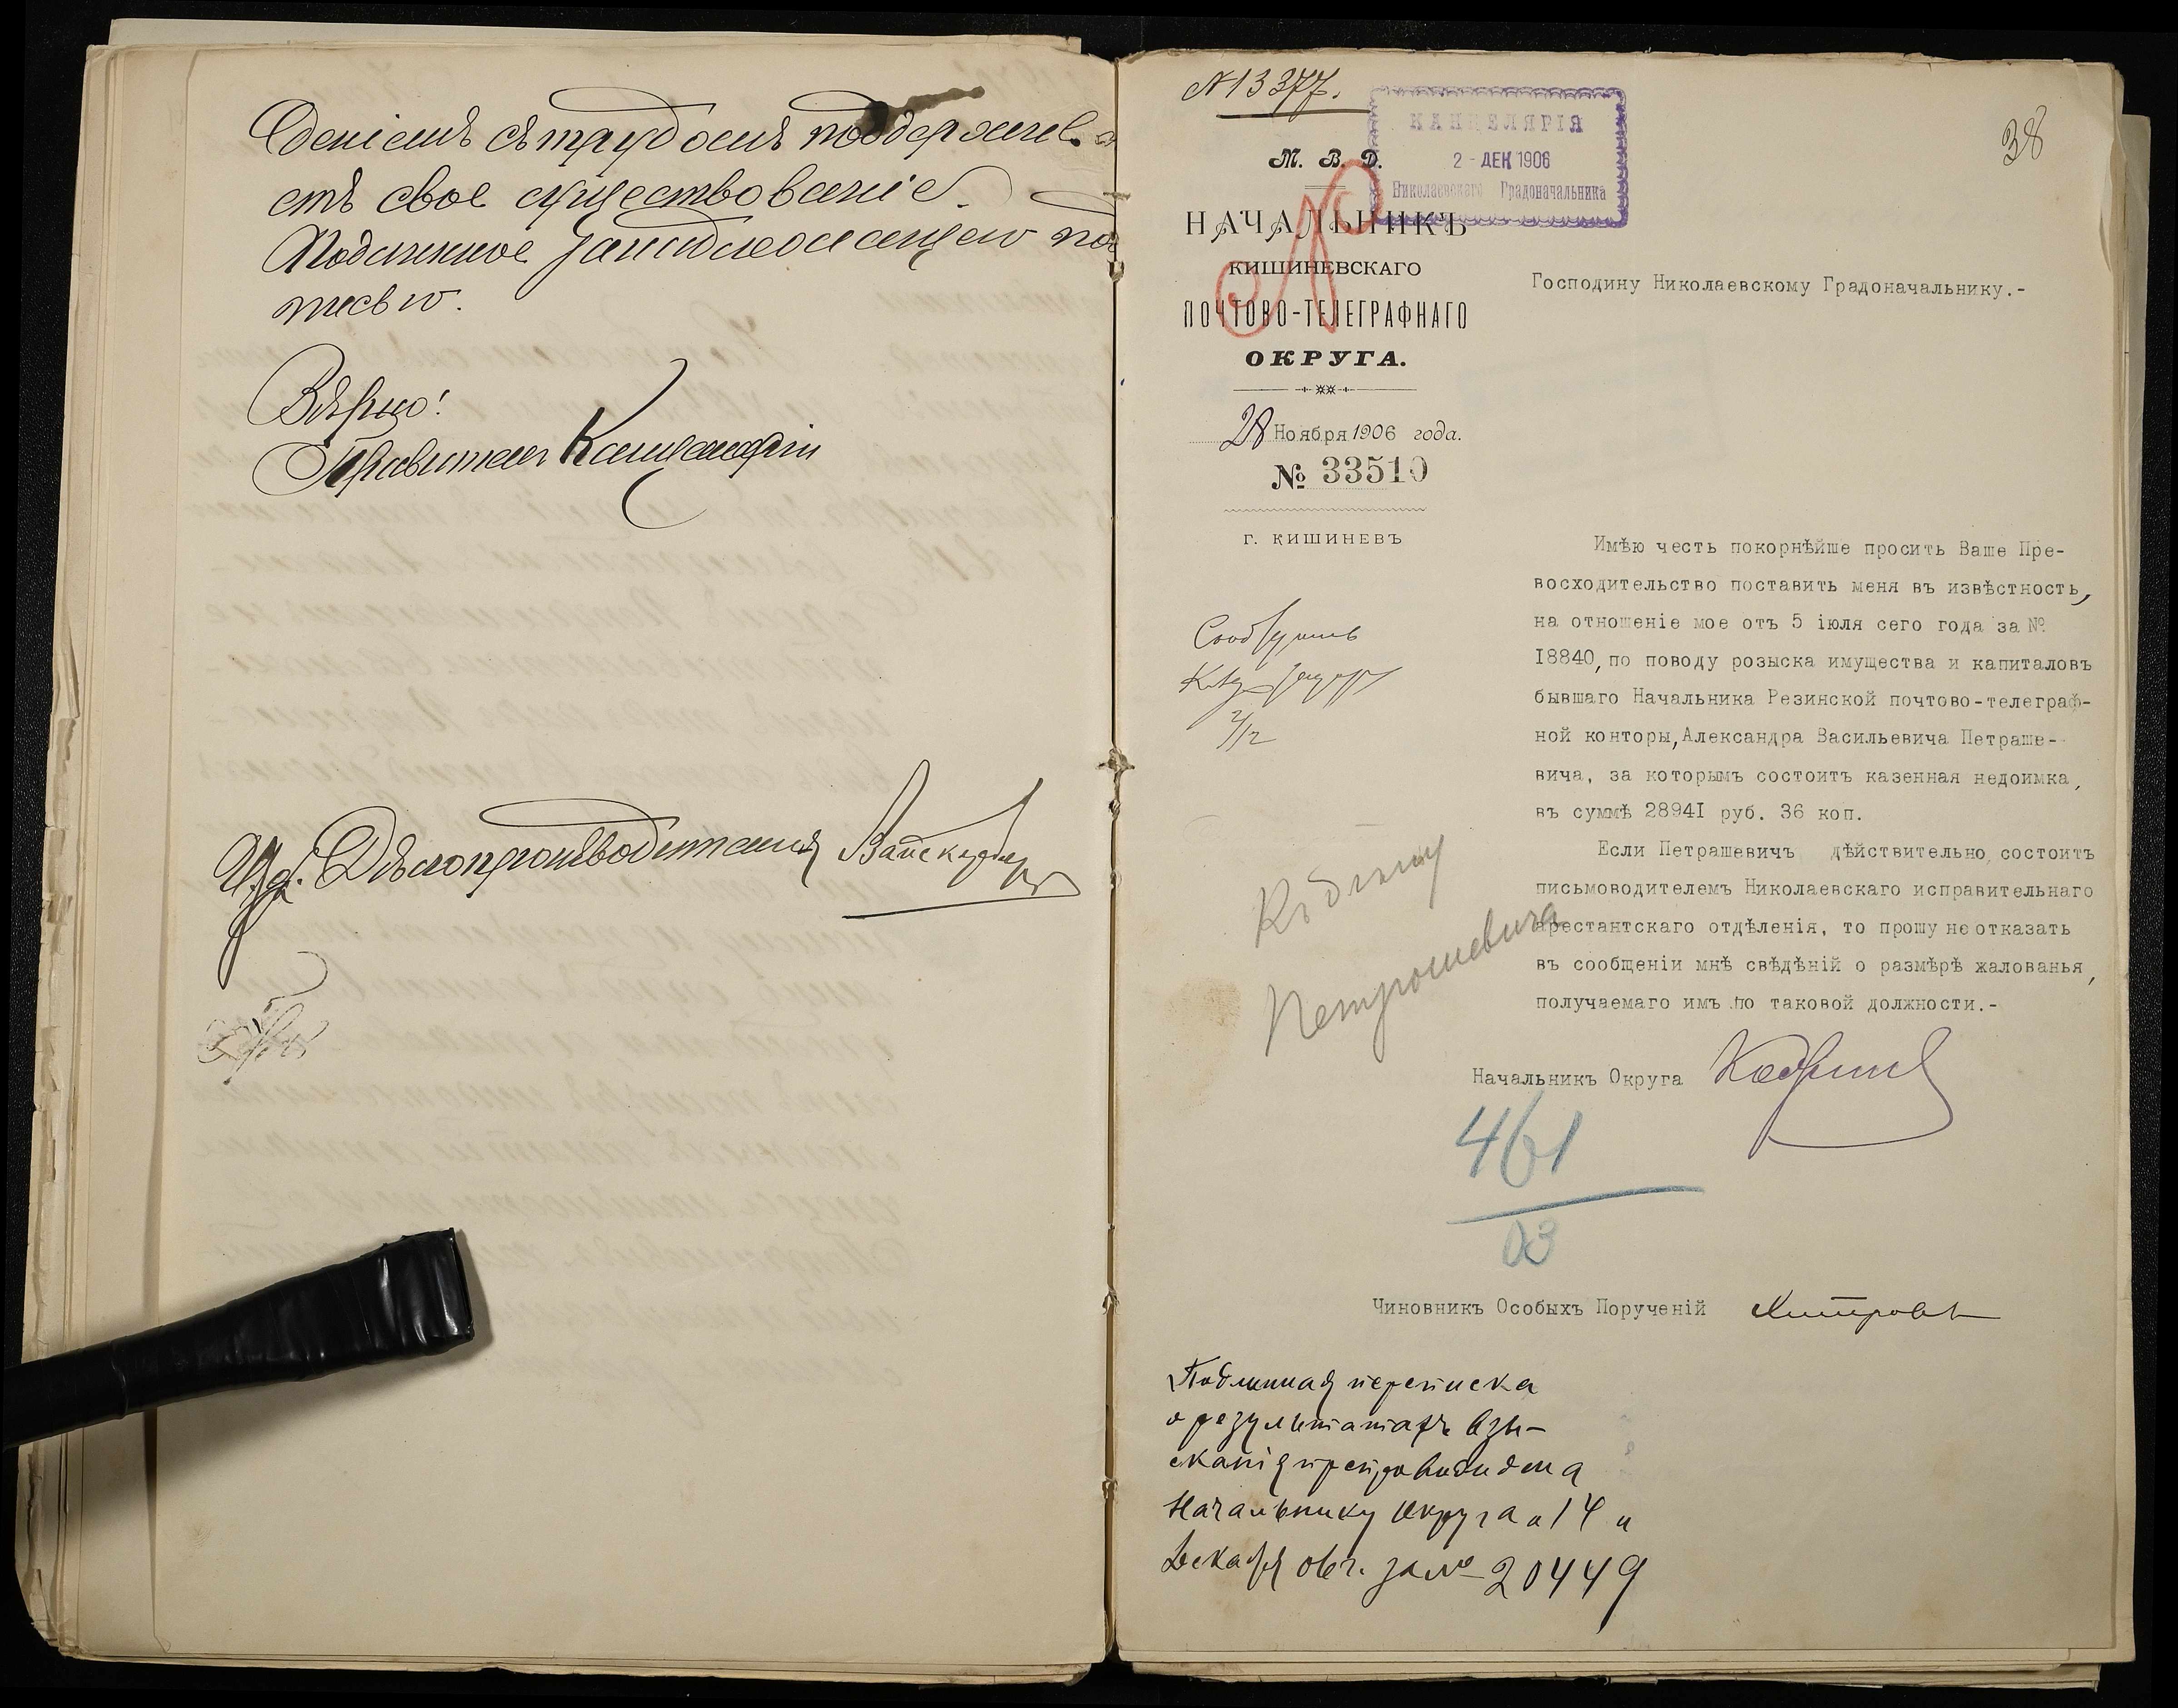 деніемъ съ трудомъ поддержива
етъ свое существованіе.
Подлинное за надлежащею под
писью.
Вѣрно!
Правитель Канцеляріи
И. д. Дѣлопроизводителя
№ 13377.
КАНЦЕЛЯРІЯ
2 - ДЕК 1906
Николаевскаго Градоначальника
38
М. В. Д.
НАЧАЛЬНИКЪ
КИШИНЕВСКАГО
ПОЧТОВО-ТЕЛЕГРАФНАГО
ОКРУГА.
28 Ноября 1906 года.
№ 33510
г. КИШИНЕВЪ
Господину Николаевскому Градоначальнику.-
Имѣю честь покорнѣйше просить Ваше Пре-
восходительство поставить меня въ извѣстность,
на отношеніе мое отъ 5 іюля сего года за №
18840, по поводу розыска имущества и капиталовъ
бывшаго Начальника Резинской почтово-телеграф-
ной конторы, Александра Васильевича Петраше-
вича, за которымъ состоитъ казенная недоимка,
въ суммѣ 28941 руб. 36 коп.
Если Петрашевичъ дѣйствительно состоитъ
письмоводителемъ Николаевскаго исправительнаго
арестантскаго отдѣленія, то прошу не отказать
въ сообщеніи мнѣ свѣдѣній о размѣрѣ жалованья,
получаемаго имъ по таковой должности.-
2/12
Къ дѣлу
Петрашевича
Начальникъ Округа
461
03
Чиновникъ Особыхъ Порученій
Подлинная переписка
о результатахъ взы-
сканія препровождена
Начальнику Округа 14
Декабря 06 г. за № 20449